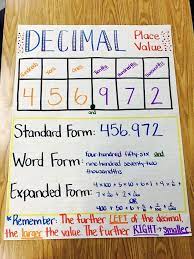 DECIMAL Place Value
Hundreds Tens Ones Tenths Hundredths Thousandths
4 5 6 . 9 7 2
and
Standard Form: 456.972
Word Form: four hundred fifty-six and
nine hundred seventy-two
thousandths
Expanded Form:
*Remember: The further LEFT of the decimal,
the larger the value. The further RIGHT → smaller.